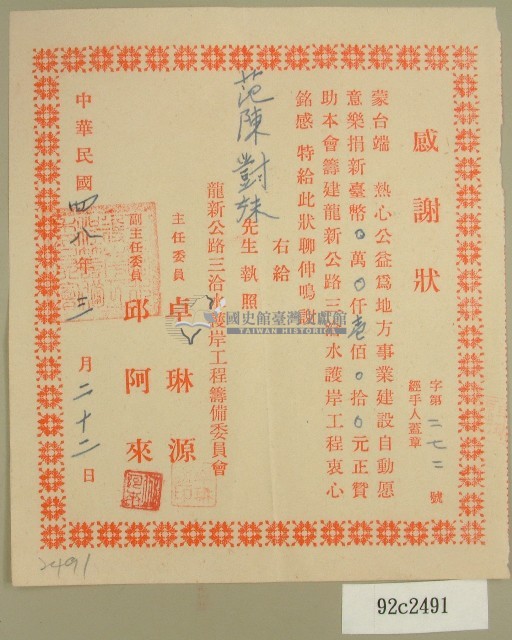 感謝狀
字第二七二號
經手人蓋章
蒙台端 熱心公益爲地方事業建設自動愿
意樂捐新臺幣0萬0仟壱佰0拾0元正賛
助本會籌建龍新公路三洽水護岸工程衷心
銘感 特給此狀聊伸鳴謝
右給
范陳對妹先生執照
龍新公路三洽水護岸工程籌備委員會
主任委員 卓琳源
副主任委員 邱阿來
中華民國四八年三月二十二日
國史館臺灣文獻館
TAIWAN HISTORICA
2491
92c2491